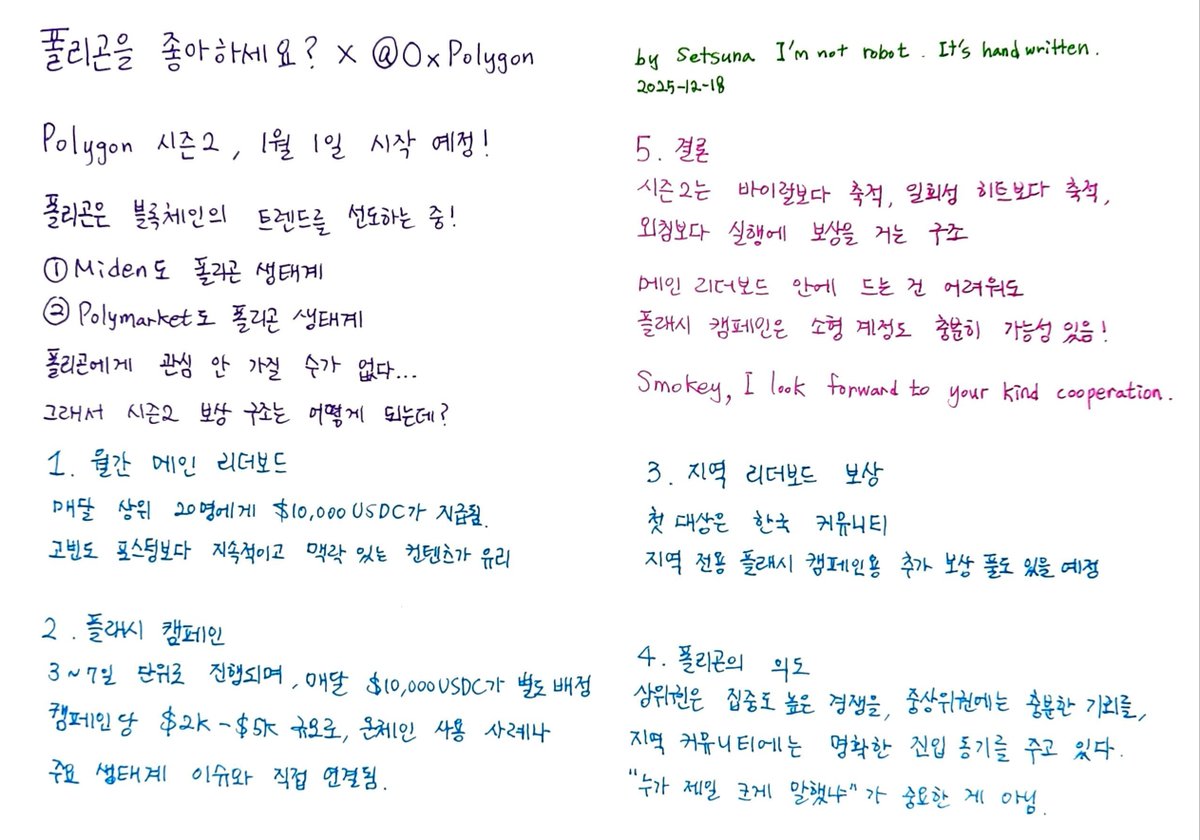 폴리곤을 좋아하세요? x @0xPolygon
by Setsuna I'm not robot. It's handwritten.
2025-12-18
Polygon 시즌2, 1월 1일 시작 예정!
폴리곤은 블록체인의 트렌드를 선도하는 중!
① Miden도 폴리곤 생태계
② Polymarket도 폴리곤 생태계
폴리곤에게 관심 안 가질 수가 없다...
그래서 시즌2 보상 구조는 어떻게 되는데?
1. 월간 메인 리더보드
매달 상위 20명에게 $10,000 USDC가 지급됨.
고빈도 포스팅보다 지속적이고 맥락 있는 컨텐츠가 유리
2. 플래시 캠페인
3~7일 단위로 진행되며, 매달 $10,000USDC가 별도 배정
캠페인당 $2K-$5K 규모로, 온체인 사용 사례나
주요 생태계 이슈와 직접 연결됨.
3. 지역 리더보드 보상
첫 대상은 한국 커뮤니티
지역 전용 플래시 캠페인용 추가 보상 풀도 있을 예정
4. 폴리곤의 의도
상위권은 집중도 높은 경쟁을, 중상위권에는 충분한 기회를,
지역 커뮤니티에는 명확한 진입 동기를 주고 있다.
"누가 제일 크게 말했냐"가 중요한 게 아님.
5. 결론
시즌2는 바이럴보다 축적, 일회성 히트보다 축적,
외침보다 실행에 보상을 거는 구조
메인 리더보드 안에 드는 건 어려워도
플래시 캠페인은 소형 계정도 충분히 가능성 있음!
Smokey, I look forward to your kind cooperation.